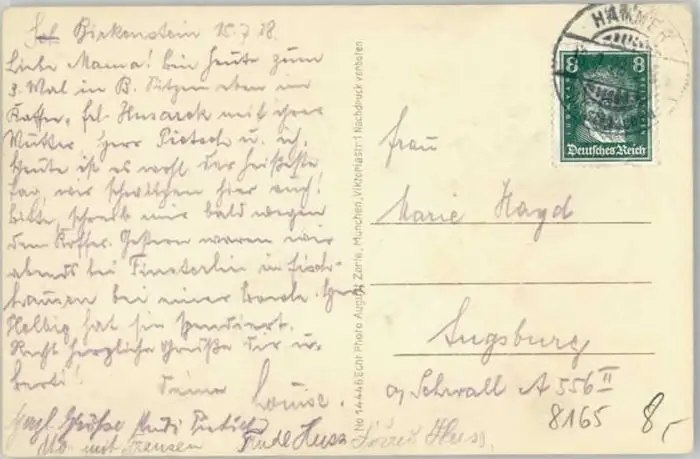 Birkenstein 15.7.28.
Liebe Mama! bin heute zum
3. Mal in B. Sitzen eben im
Kaffee, frl. Husarek mit ihrer
Mutter, Herr Pietsch u. ich.
Heute ist es wohl der heißeste
Tag, wir schwitzen hier auch!
Bitte, schreib mir bald wegen
dem Koffer. Gestern waren wir
abends bei Finsterlin in Fisch-
hausen bei einer Bowle. Herr
Helbig hat sie spendiert.
Recht herzliche Grüße dir u.
Berti!
Deine Louise.
Herzl. Grüsse Rudi Pietsch
No 14446 Echt Photo August Zerle, München, Viktoriastr. 1 Nachdruck verboten
HAMMER
8 8
Deutsches Reich
Frau
Marie Hayd
Augsburg
Schwall A 556 II
8165 8,-